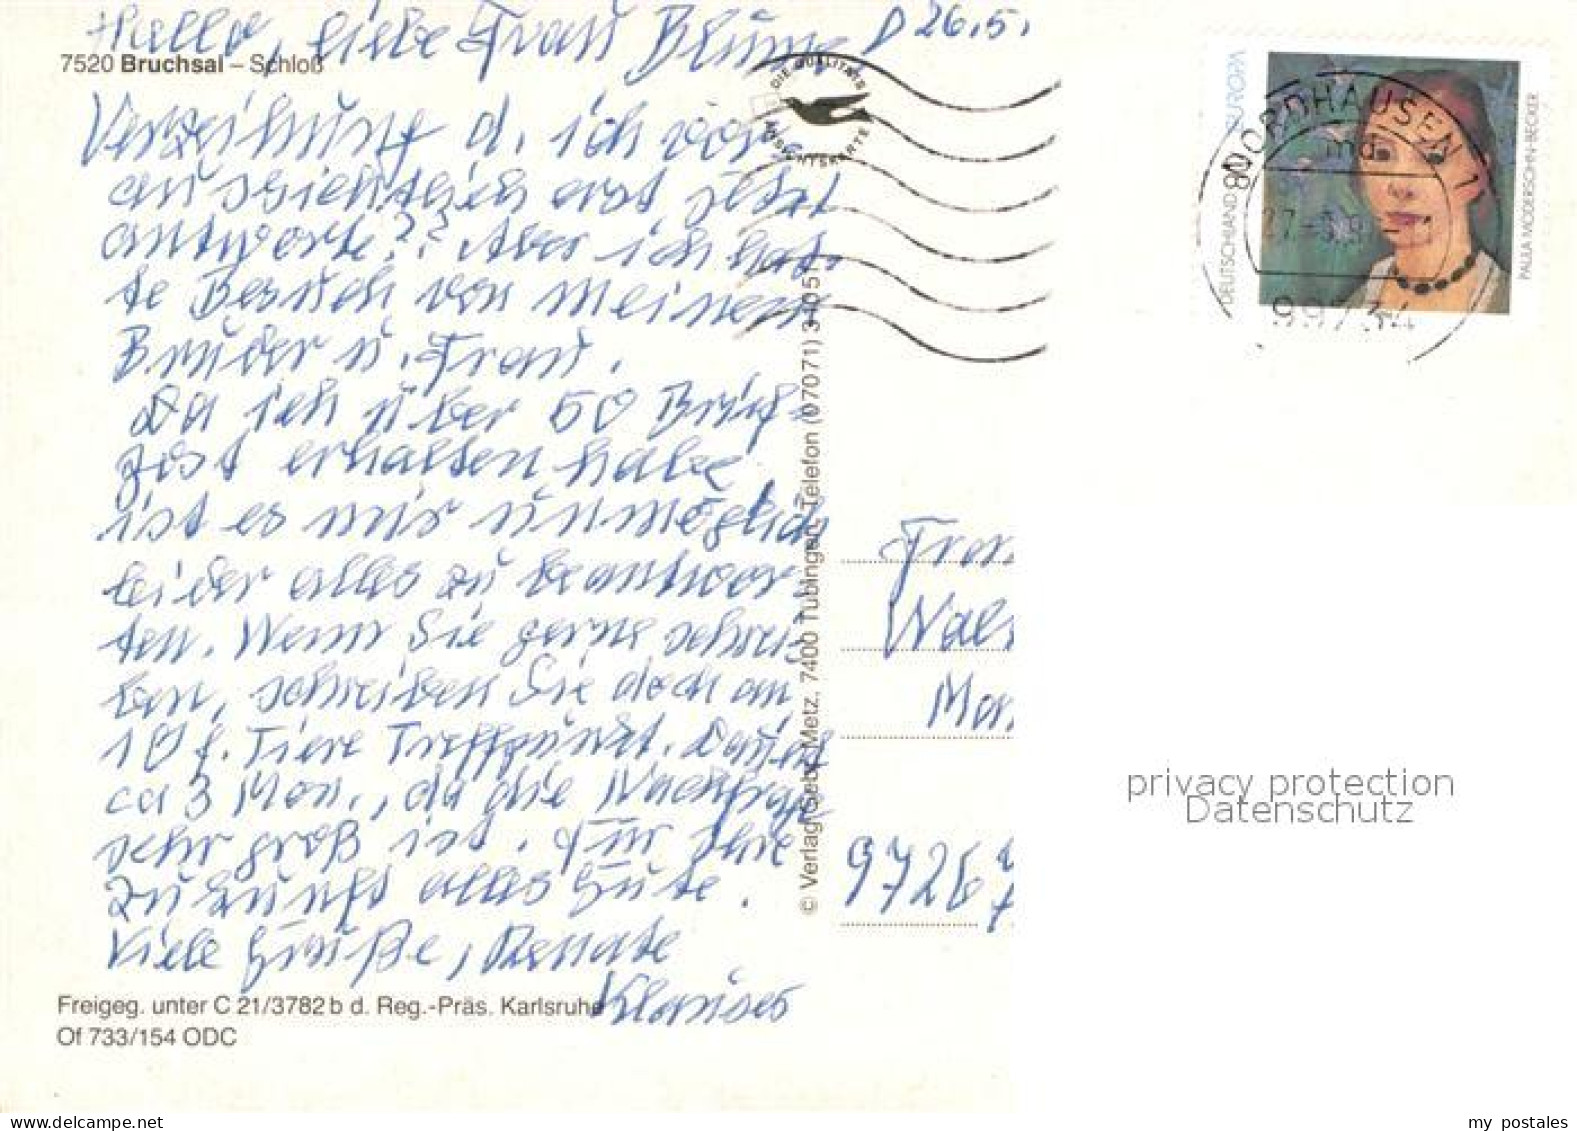 Hallo, liebe Frau Blume D 26.5.
7520 Bruchsal – Schloß
Verzeihung d. ich vor-
aussichtlich erst jetzt
antworte?? Aber ich hat-
te Besuch von meinem
Bruder u. Frau.
Da ich über 50 Brief-
post erhalten habe
ist es mir unmöglich
leider alles zu beantwor-
ten. Wenn Sie gerne schrei-
ben, schreiben Sie doch an
f. Tiere Treffpunkt. Dauert
ca 3 Mon., da die Nachfrage
sehr groß ist. Für Ihre
Zukunft alles Gute.
Viele Grüße, Renate
Freigeg. unter C 21/3782 b d. Reg.-Präs. Karlsruhe
Of 733/154 ODC
DIE QUALITÄTS
ANSICHTSKARTE
© Verlag Gebr. Metz, 7400 Tübingen, Telefon (07071)
DEUTSCHLAND 80 EUROPA
PAULA MODERSOHN-BECKER
NORDHAUSEN 1
md
99734
Wal
Mar
9726
privacy protection
Datenschutz
my postales